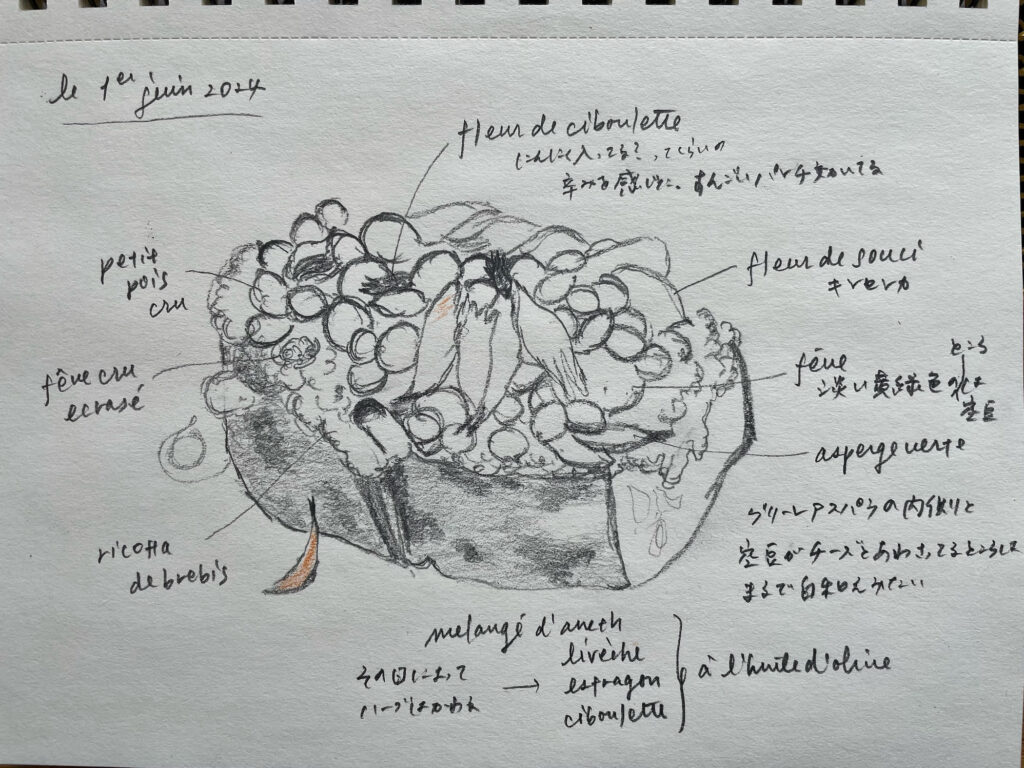 le 1er juin 2024
fleur de ciboulette
にんにく入ってる?ってくらいの
辛みを感じた。すんごいパンチ効いてる
petit
pois
cru
fleur de souci
キンセンカ
fêve cru
ecrasé
fêve
淡い黄緑色の
ところ
は
空豆
asperge verte
グリーンアスパラの内側と
空豆がチーズとあわさってるところは
まるで白和えみたい
ricotta
de brebis
melangé d'aneth
livèche
estragon
ciboulette
à l'huile d'olive
その日によって
ハーブはかわる